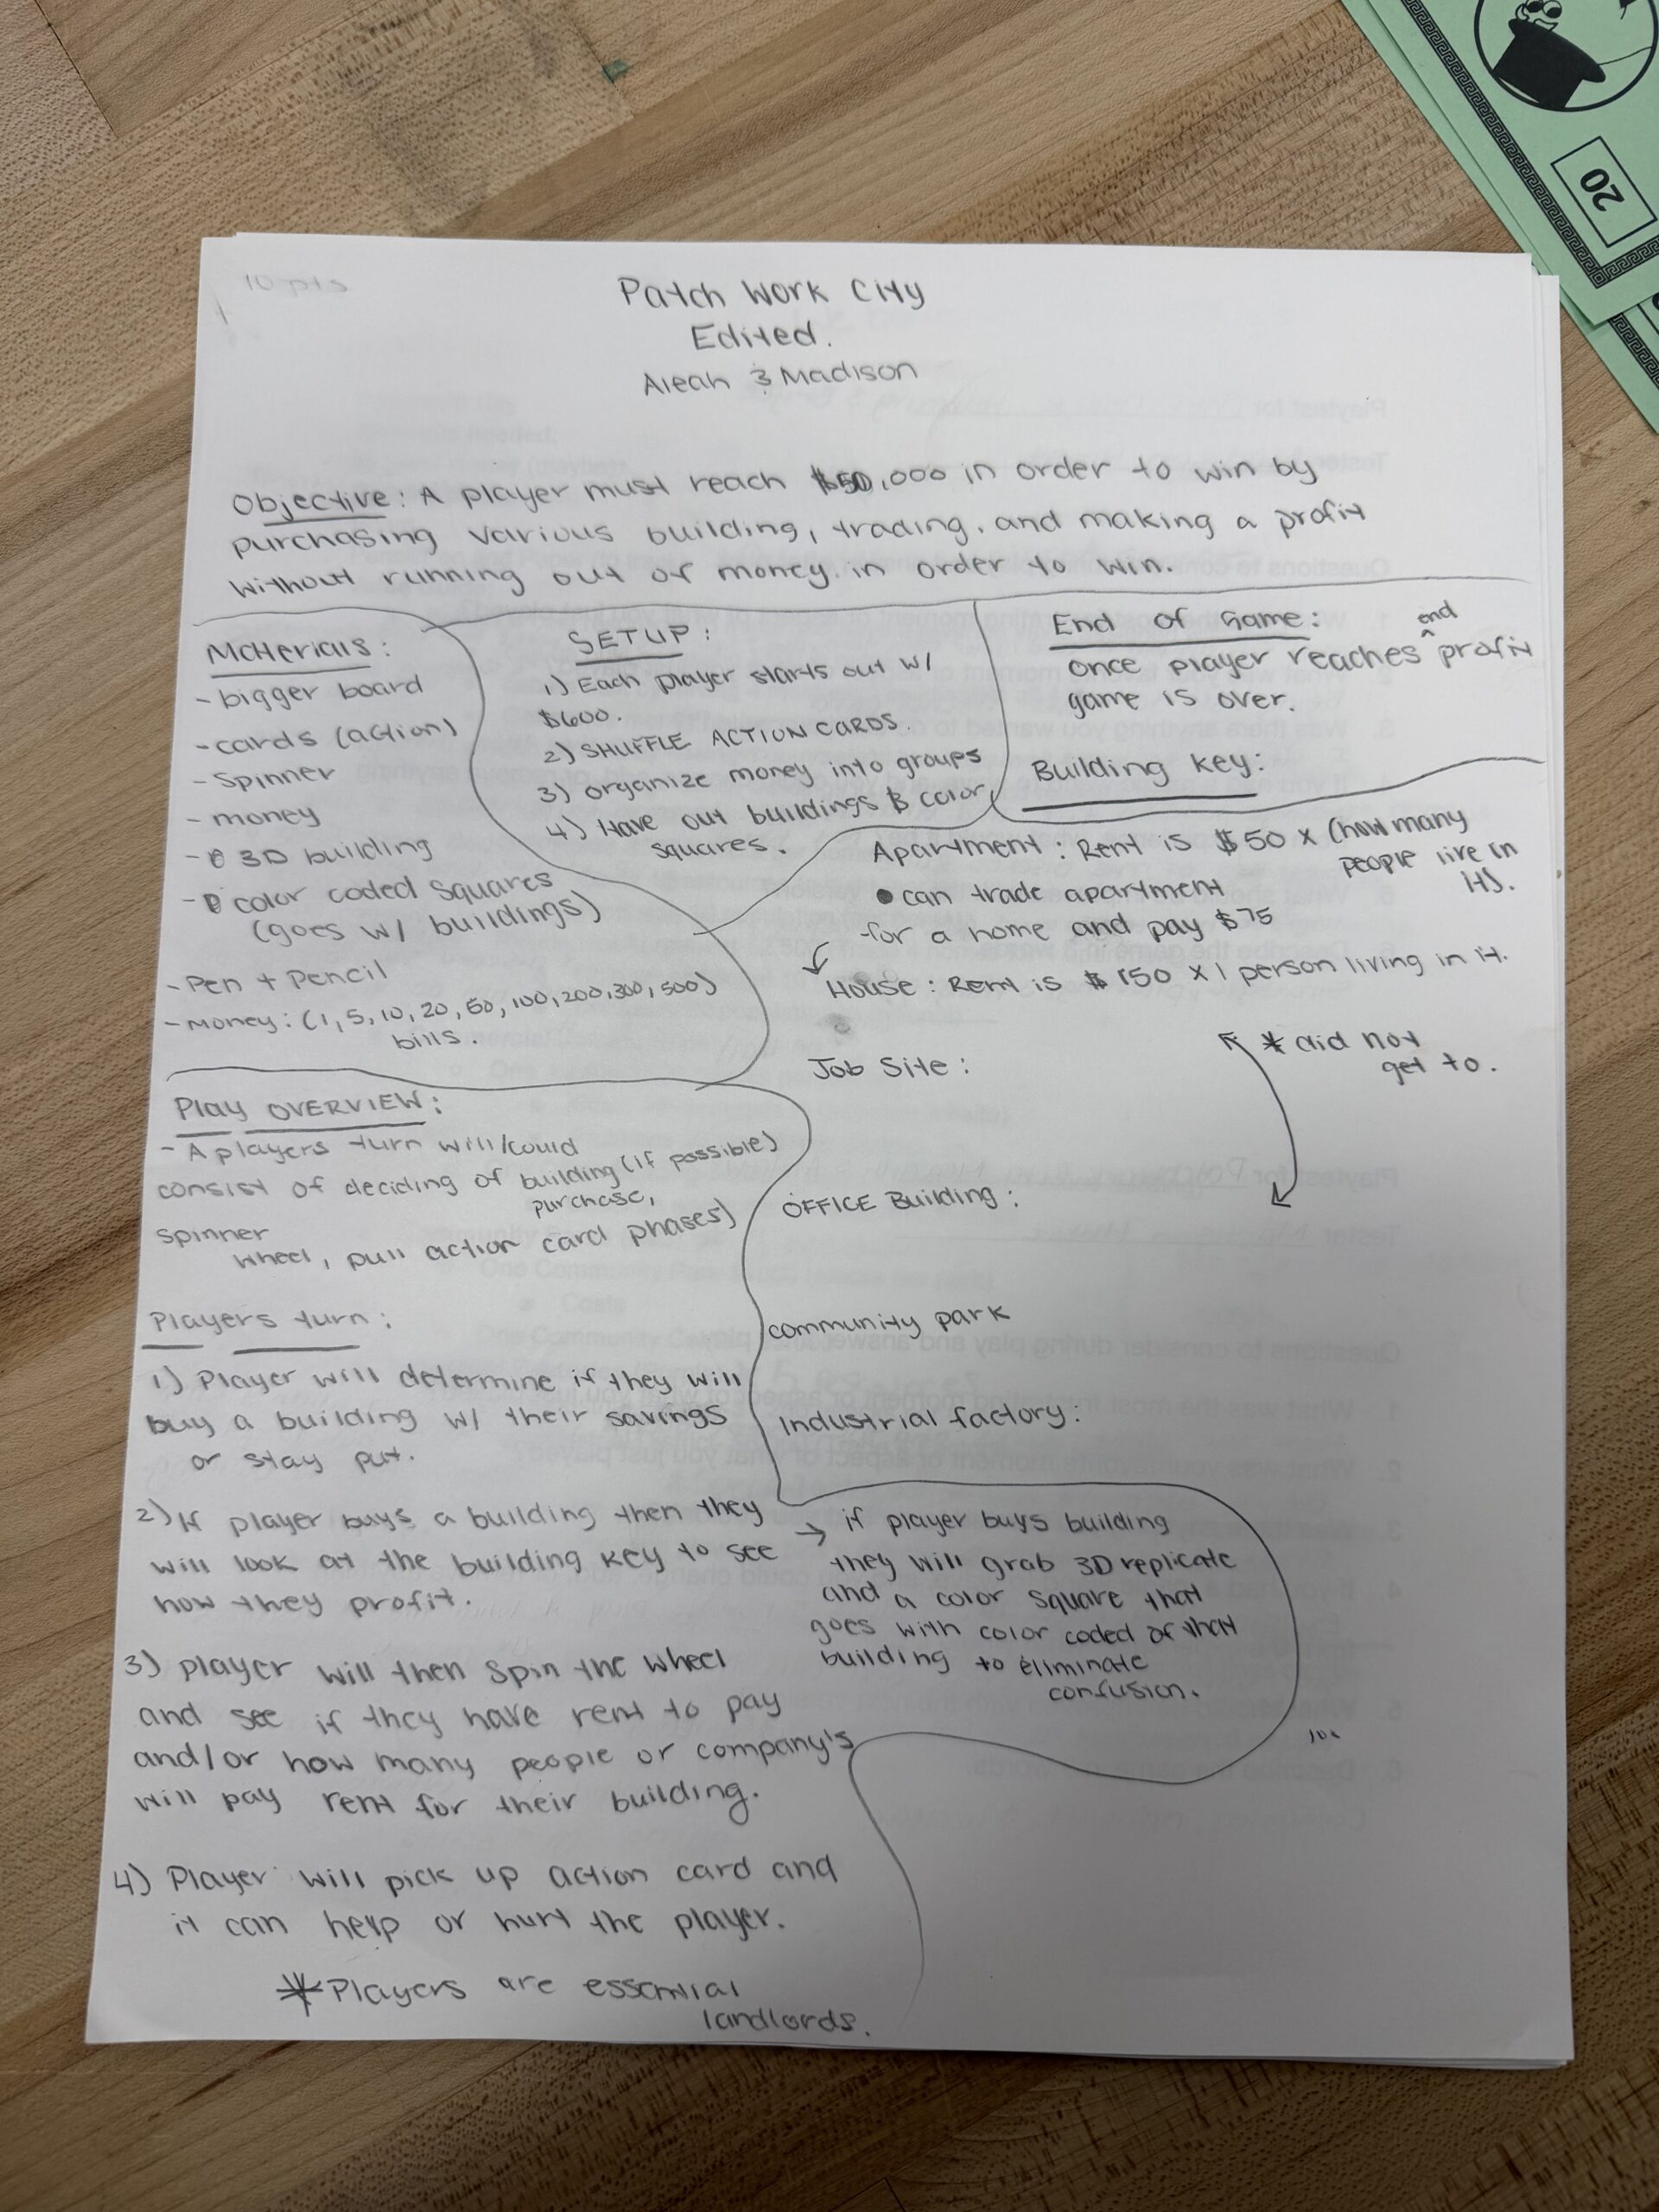 10 pts
Patch Work City
Edited.
Aleah & Madison
Objective: A player must reach $50,000 in order to win by
purchasing various building, trading, and making a profit
without running out of money in order to win.
Materials:
- bigger board
- cards (action)
- Spinner
- money
- 3D building
- color coded squares
(goes w/ buildings)
- Pen + Pencil
- Money: (1, 5, 10, 20, 50, 100, 200, 300, 500)
bills.
SETUP:
1) Each player starts out w/
$600.
2) SHUFFLE ACTION CARDS.
3) organize money into groups
4) Have out buildings & color
squares.
End of Game:
once player reaches end profit
game is over.
Building Key:
Apartment: Rent is $50 x (how many
people live in
it).
• can trade apartment
for a home and pay $75
House: Rent is $150 x 1 person living in it.
* did not
get to.
Job Site:
OFFICE Building:
community park
Industrial factory:
Play OVERVIEW:
- A players turn will/could
consist of deciding of building (if possible)
purchase,
spinner
wheel, pull action card phases)
Players turn:
1) Player will determine if they will
buy a building w/ their savings
or stay put.
2) If player buys a building then they
will look at the building key to see
how they profit.
→ if player buys building
they will grab 3D replicate
and a color square that
goes with color coded of that
building to eliminate
confusion.
3) player will then spin the wheel
and see if they have rent to pay
and/or how many people or company's
will pay rent for their building.
4) Player will pick up action card and
it can help or hurt the player.
* Players are essential
landlords.
20